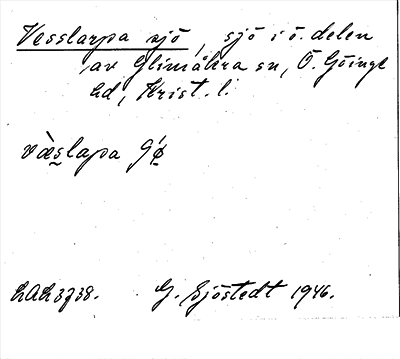 Vesslarpa sjö, sjö i ö. delen
av Glimåkra sn, Ö. Göinge
hd, Krist. l.
væ̀s̯lapa
LAL 3738. G. Sjöstedt 1946.